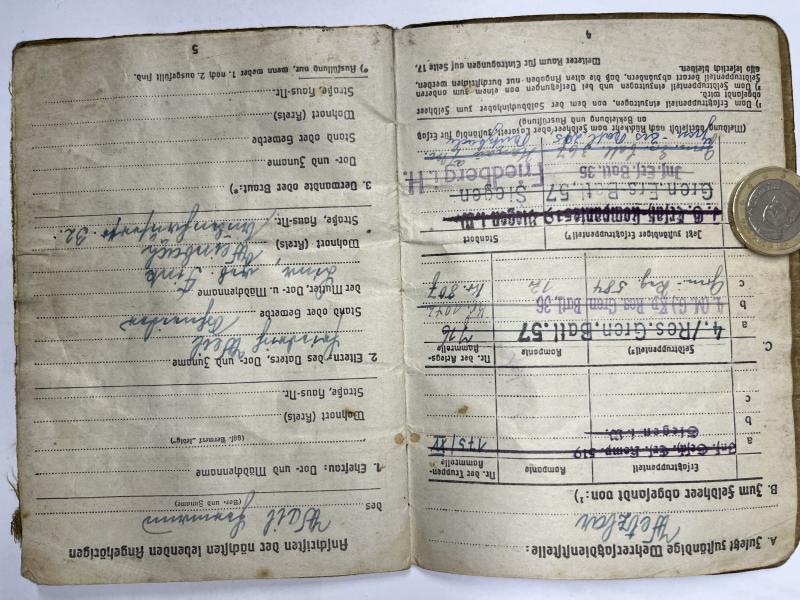 4
A. Zuletzt zuständige Wehrersatzdienststelle:
Wetzlar
B. Zum Feldheer abgesandt von:¹)
Ersatztruppenteil
Kompanie
Nr. der Truppen-
stammrolle
a
Siegen i. W.
175/XV
b
c
C.
Feldtruppenteil²)
Kompanie
Nr. der Kriegs-
stammrolle
a
4./Res.Gren.Batl.57
b
4.(M.G.)Kp. Res. Gren. Batl. 36
c
Gren.-Reg. 584
12
Nr. 807
Jetzt zuständiger Ersatztruppenteil²)
Standort
Gren.Ers.Batl.57
Siegen
Inf. Ers. Batl. 35
Friedberg i. H.
(Meldung dortselbst nach Rückkehr vom Feldheer oder Lazarett, zuständig für Ersatz
an Bekleidung und Ausrüstung)
¹) Vom Ersatztruppenteil einzutragen, von dem der Soldbuchinhaber zum Feldheer
abgesandt wird.
²) Vom Feldtruppenteil einzutragen und bei Versetzungen von einem zum anderen
Feldtruppenteil derart abzuändern, daß die alten Angaben nur durchstrichen werden,
also leserlich bleiben.
Weiterer Raum für Eintragungen auf Seite 17.
5
Anschriften der nächsten lebenden Angehörigen
des Weil Hermann
(Vor- und Zuname)
1. Ehefrau: Vor- und Mädchenname
(ggf. Vermerk „ledig“)
Wohnort (Kreis)
Straße, Haus-Nr.
2. Eltern: des Vaters, Vor- und Zuname
Weil
Stand oder Gewerbe
Schneider
der Mutter, Vor- u. Mädchenname
Wohnort (Kreis)
Straße, Haus-Nr.
32
3. Verwandte oder Braut:*)
Vor- und Zuname
Stand oder Gewerbe
Wohnort (Kreis)
Straße, Haus-Nr.
*) Ausfüllung nur, wenn weder 1. noch 2. ausgefüllt sind.